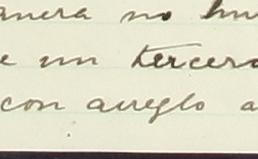 anera no hu
e un tercero
con arreglo a